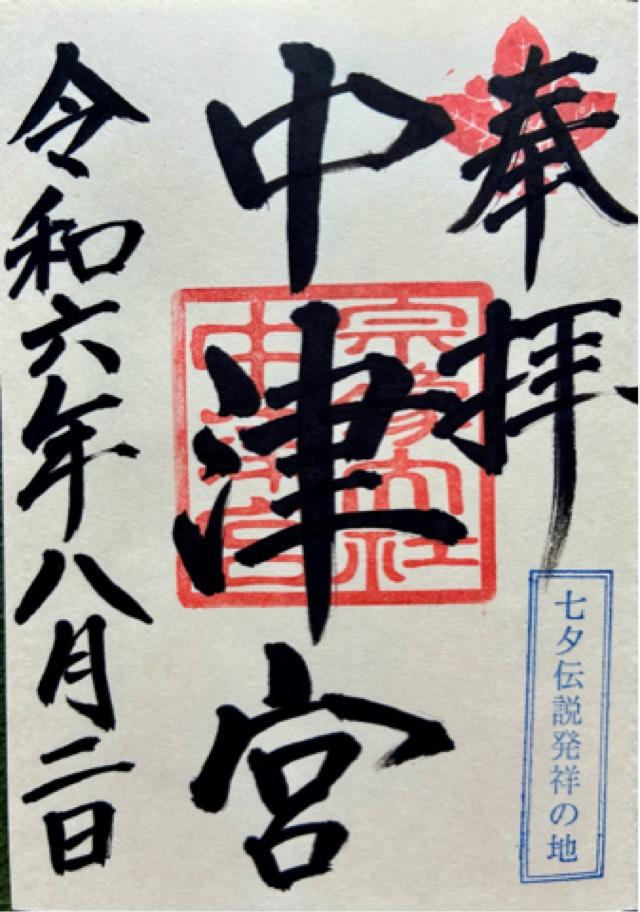 奉拝
七夕伝説発祥の地
中津宮
宗像大社
中津宮
令和六年八月二日